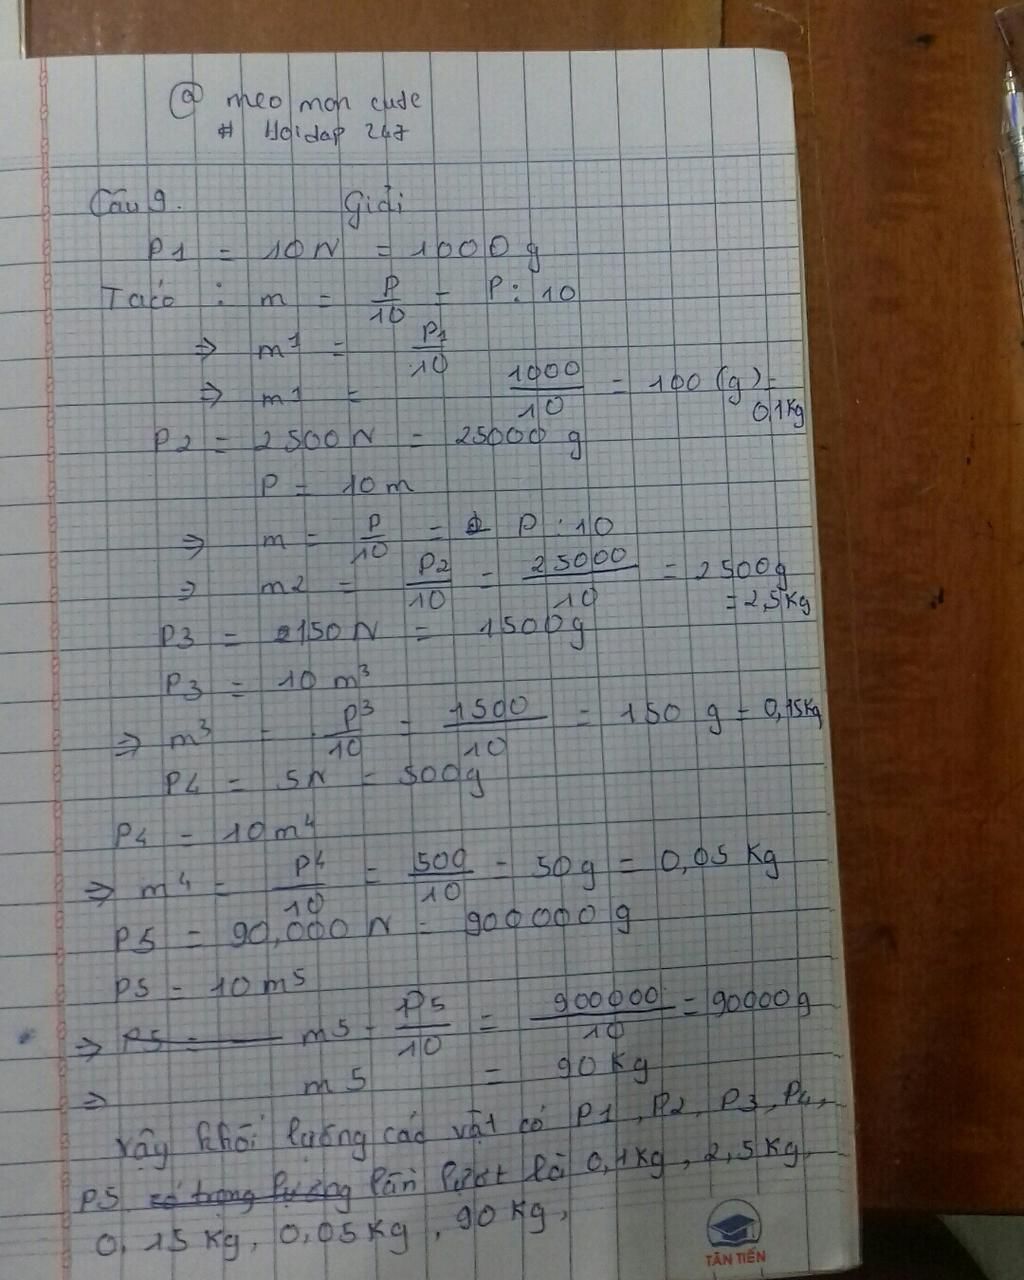 @ meo mon cute
# Hoidap 247
Câu 9. Giải
P1 = 10N = 1000g
Ta có : m = P/10 = P: 10
⇒ m1 = P1/10
⇒ m1 = 1000/10 = 100 (g) = 0,1Kg
P2 = 2500N = 25000 g
P = 10m
⇒ m = P/10 = P : 10
⇒ m2 = P2/10 = 25000/10 = 2500g
= 2,5Kg
P3 = 150N = 1500g
P3 = 10 m3
⇒ m3 = P3/10 = 1500/10 = 150 g = 0,15Kg
P4 = 5N = 500g
P4 = 10m4
⇒ m4 = P4/10 = 500/10 = 50g = 0,05 Kg
P5 = 90,000 N = 900000 g
P5 = 10m5
⇒ P5 = m5 = P5/10 = 900000/10 = 90000g
⇒ m5 = 90Kg
Vậy khối lượng các vật có P1, P2, P3, P4,
P5 có trọng lượng lần lượt là 0,1Kg, 2,5Kg,
0,15Kg, 0,05Kg, 90Kg,
TÂN TIẾN